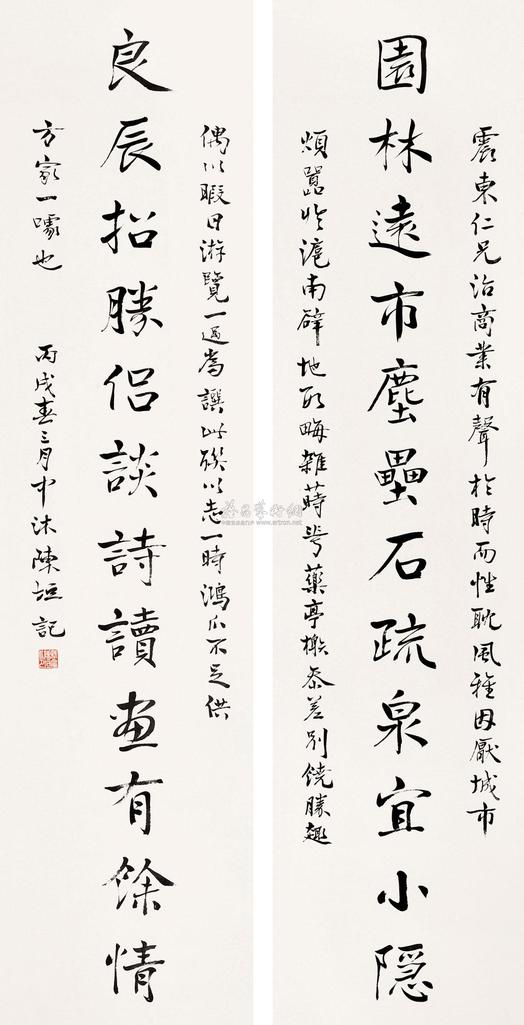 震東仁兄治商業有聲於時而性耽風雅因厭城市
園林遠市塵壘石疏泉宜小隱
煩囂於滬南辟地數畝雜蒔芍藥亭榭參差別饒勝趣
偶以暇日游覽一過為譔此聯以志一時鴻爪不足供
良辰招勝侶談詩讀畫有餘情
方家一噱也 丙戌春三月中沐陳垣記
www.artron.net